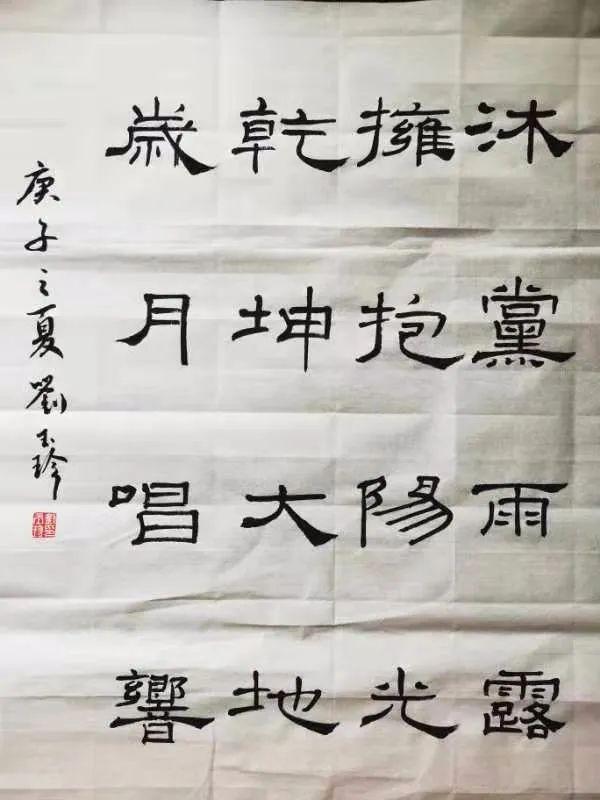 沐黨雨露
擁抱陽光
乾坤大地
歲月唱響
庚子之夏劉玉珍